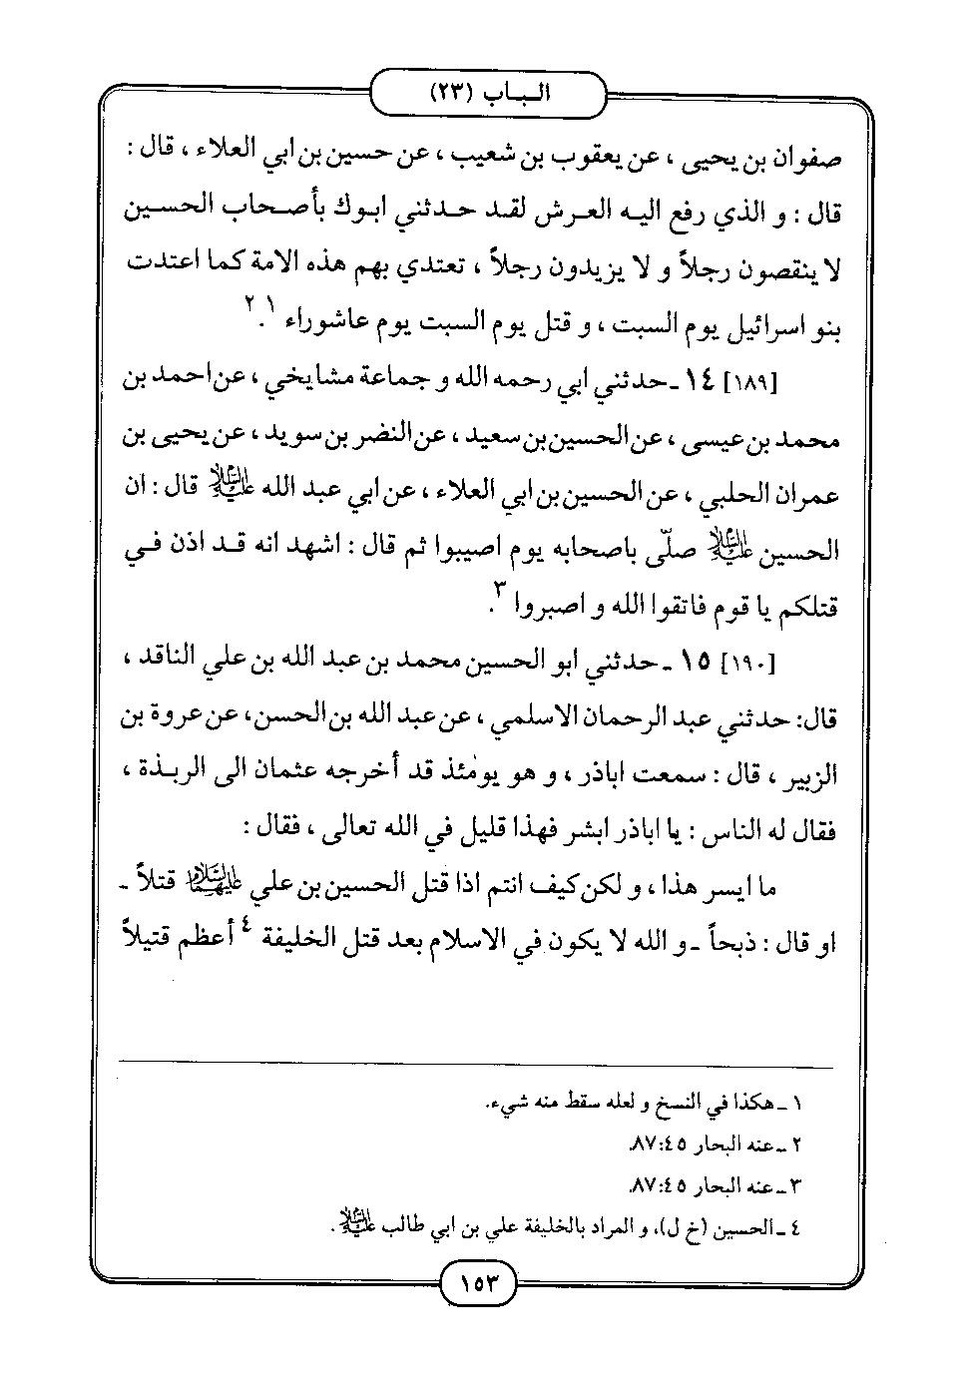 الباب (٢٣)
صفوان بن يحيى ، عن يعقوب بن شعيب ، عن حسين بن ابي العلاء ، قال :
قال : و الذي رفع اليه العرش لقد حدثني ابوك بأصحاب الحسين
لا ينقصون رجلاً و لا يزيدون رجلاً ، تعتدي بهم هذه الامة كما اعتدت
بنو اسرائيل يوم السبت ، و قتل يوم السبت يوم عاشوراء ١.٢
[١٨٩] ١٤ ـ حدثني ابي رحمه الله و جماعة مشايخي ، عن احمد بن
محمد بن عيسى ، عن الحسين بن سعيد ، عن النضر بن سويد ، عن يحيى بن
عمران الحلبي ، عن الحسين بن ابي العلاء ، عن ابي عبد الله عليه السلام قال : ان
الحسين عليه السلام صلّى باصحابه يوم اصيبوا ثم قال : اشهد انه قد اذن في
قتلكم يا قوم فاتقوا الله و اصبروا ٣.
[١٩٠] ١٥ ـ حدثني ابو الحسين محمد بن عبد الله بن علي الناقد ،
قال: حدثني عبد الرحمان الاسلمي ، عن عبد الله بن الحسن، عن عروة بن
الزبير ، قال : سمعت اباذر ، و هو يومئذ قد أخرجه عثمان الى الربذة ،
فقال له الناس : يا اباذر ابشر فهذا قليل في الله تعالى ، فقال :
ما ايسر هذا ، و لكن كيف انتم اذا قتل الحسين بن علي عليهما السلام قتلاً ـ
او قال : ذبحاً ـ و الله لا يكون في الاسلام بعد قتل الخليفة ٤ أعظم قتيلاً
١ ـ هكذا في النسخ و لعله سقط منه شيء.
٢ ـ عنه البحار ٤٥:٨٧.
٣ ـ عنه البحار ٤٥:٨٧.
٤ ـ الحسين (خ ل)، و المراد بالخليفة علي بن ابي طالب عليه السلام .
١٥٣